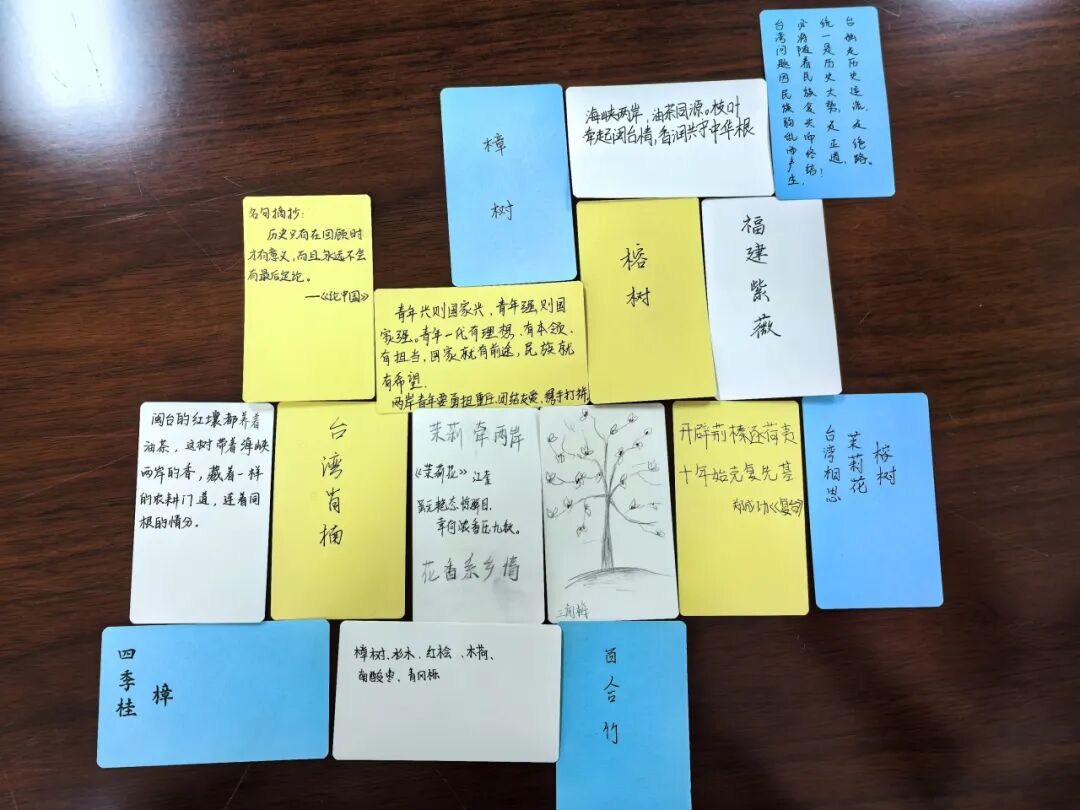 台湾问题因民族弱乱而产生,
必将随着民族复兴而终结!
统一是历史大势,是正道,
台独是历史逆流,是绝路。
海峡两岸,油茶同源。枝叶
牵起闽台情,香润共守中华根
樟树
名句摘抄:
历史只有在回顾时
才有意义,而且永远不会
有最后定论。
——《论中国》
榕树
福建紫薇
青年兴则国家兴,青年强则国
家强。青年一代有理想、有本领、
有担当,国家就有前途,民族就
有希望.
两岸青年要勇担重任、团结友爱、携手打拼
闽台的红壤都养着
油茶,这树带着海峡
两岸的香,藏着一样
的农耕门道,连着同
根的情分。
台湾肖楠
茉莉 牵两岸
《茉莉花》江奎
虽无艳态惊群目,
幸有浓香压九秋。
花香系乡情
三角梅
开辟荆榛逐荷夷
十年始克复先基
郑成功《复台》
台湾相思
茉莉花
榕树
四季桂
樟
樟树、杉木、红桧、木荷、
南酸枣、青冈栎
百合竹